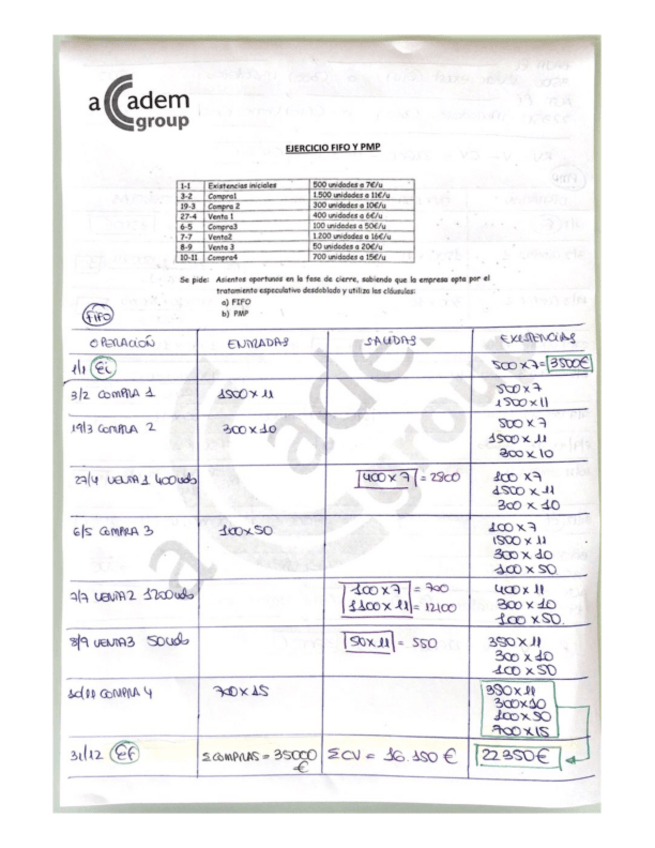 a academ
group
EJERCICIO FIFO Y PMP
1-1 Existencias iniciales 500 unidades a 7€/u
3-2 Compra1 1.500 unidades a 11€/u
19-3 Compra 2 300 unidades a 10€/u
27-4 Venta 1 400 unidades a 6€/u
6-5 Compra3 100 unidades a 50€/u
7-7 Venta2 1.200 unidades a 16€/u
8-9 Venta 3 50 unidades a 20€/u
10-11 Compra4 700 unidades a 15€/u
Se pide: Asientos oportunos en la fase de cierre, sabiendo que la empresa opta por el
tratamiento especulativo desdoblado y utiliza las cláusulas:
a) FIFO
b) PMP
FIFO
OPERACIÓN ENTRADAS SALIDAS EXISTENCIAS
1/1 Ei 500 x 7 = 3500€
3/2 COMPRA 1 1500 x 11 500 x 7
1500 x 11
19/3 COMPRA 2 300 x 10 500 x 7
1500 x 11
300 x 10
27/4 VENTA 1 400uds 400 x 7 = 2800 100 x 7
1500 x 11
300 x 10
6/5 COMPRA 3 100x50 100 x 7
1500 x 11
300 x 10
100 x 50
7/7 VENTA 2 1200uds 100 x 7 = 700 400 x 11
1100 x 11 = 12100 300 x 10
100 x 50.
8/9 VENTA3 50uds 50x11 = 550 350 x 11
300 x 10
100 x 50
10/11 COMPRA 4 700 x 15 350 x 11
300x10
100x50
700x15
31/12 Ef ΣCOMPRAS = 35000 € ΣCV = 16.150 € 22350€